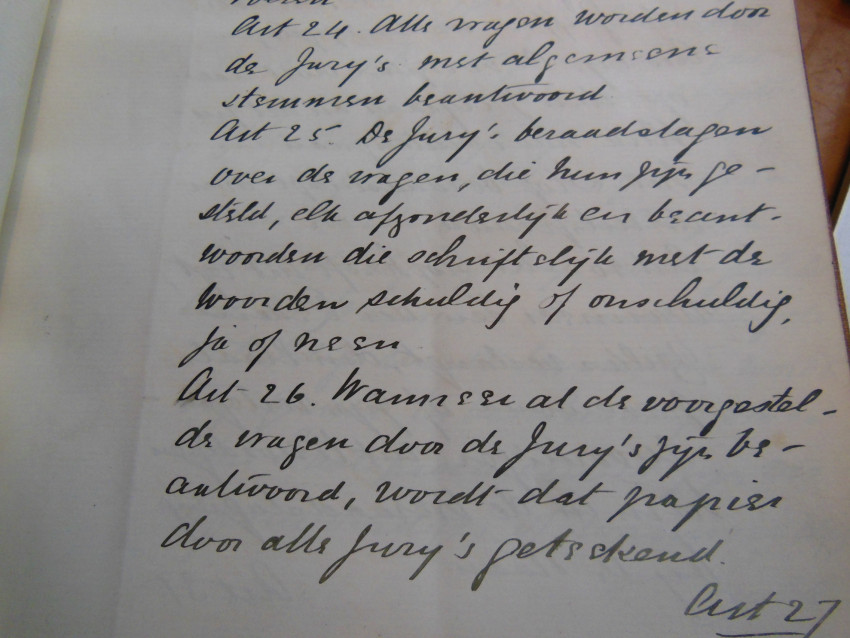 Art 24. Alle vragen worden door
de Jury's met algemeene
stemmen beantwoord
Art 25. De Jury's beraadslagen
over de vragen, die hun zijn ge-
steld, elk afzonderlijk en beant-
woorden die schriftelijk met de
woorden schuldig of onschuldig,
ja of neen
Art 26. Wanneer al de voorgestel-
de vragen door de Jury's zijn be-
antwoord, wordt dat papier
door alle Jury's geteekend.
Art 27